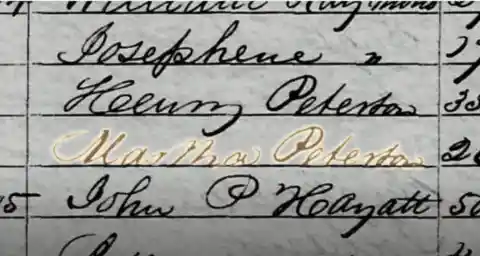 William Raymond
Josephene "
Henry Peterson 33
Martha Peterson 2
15 John P Hayatt 50